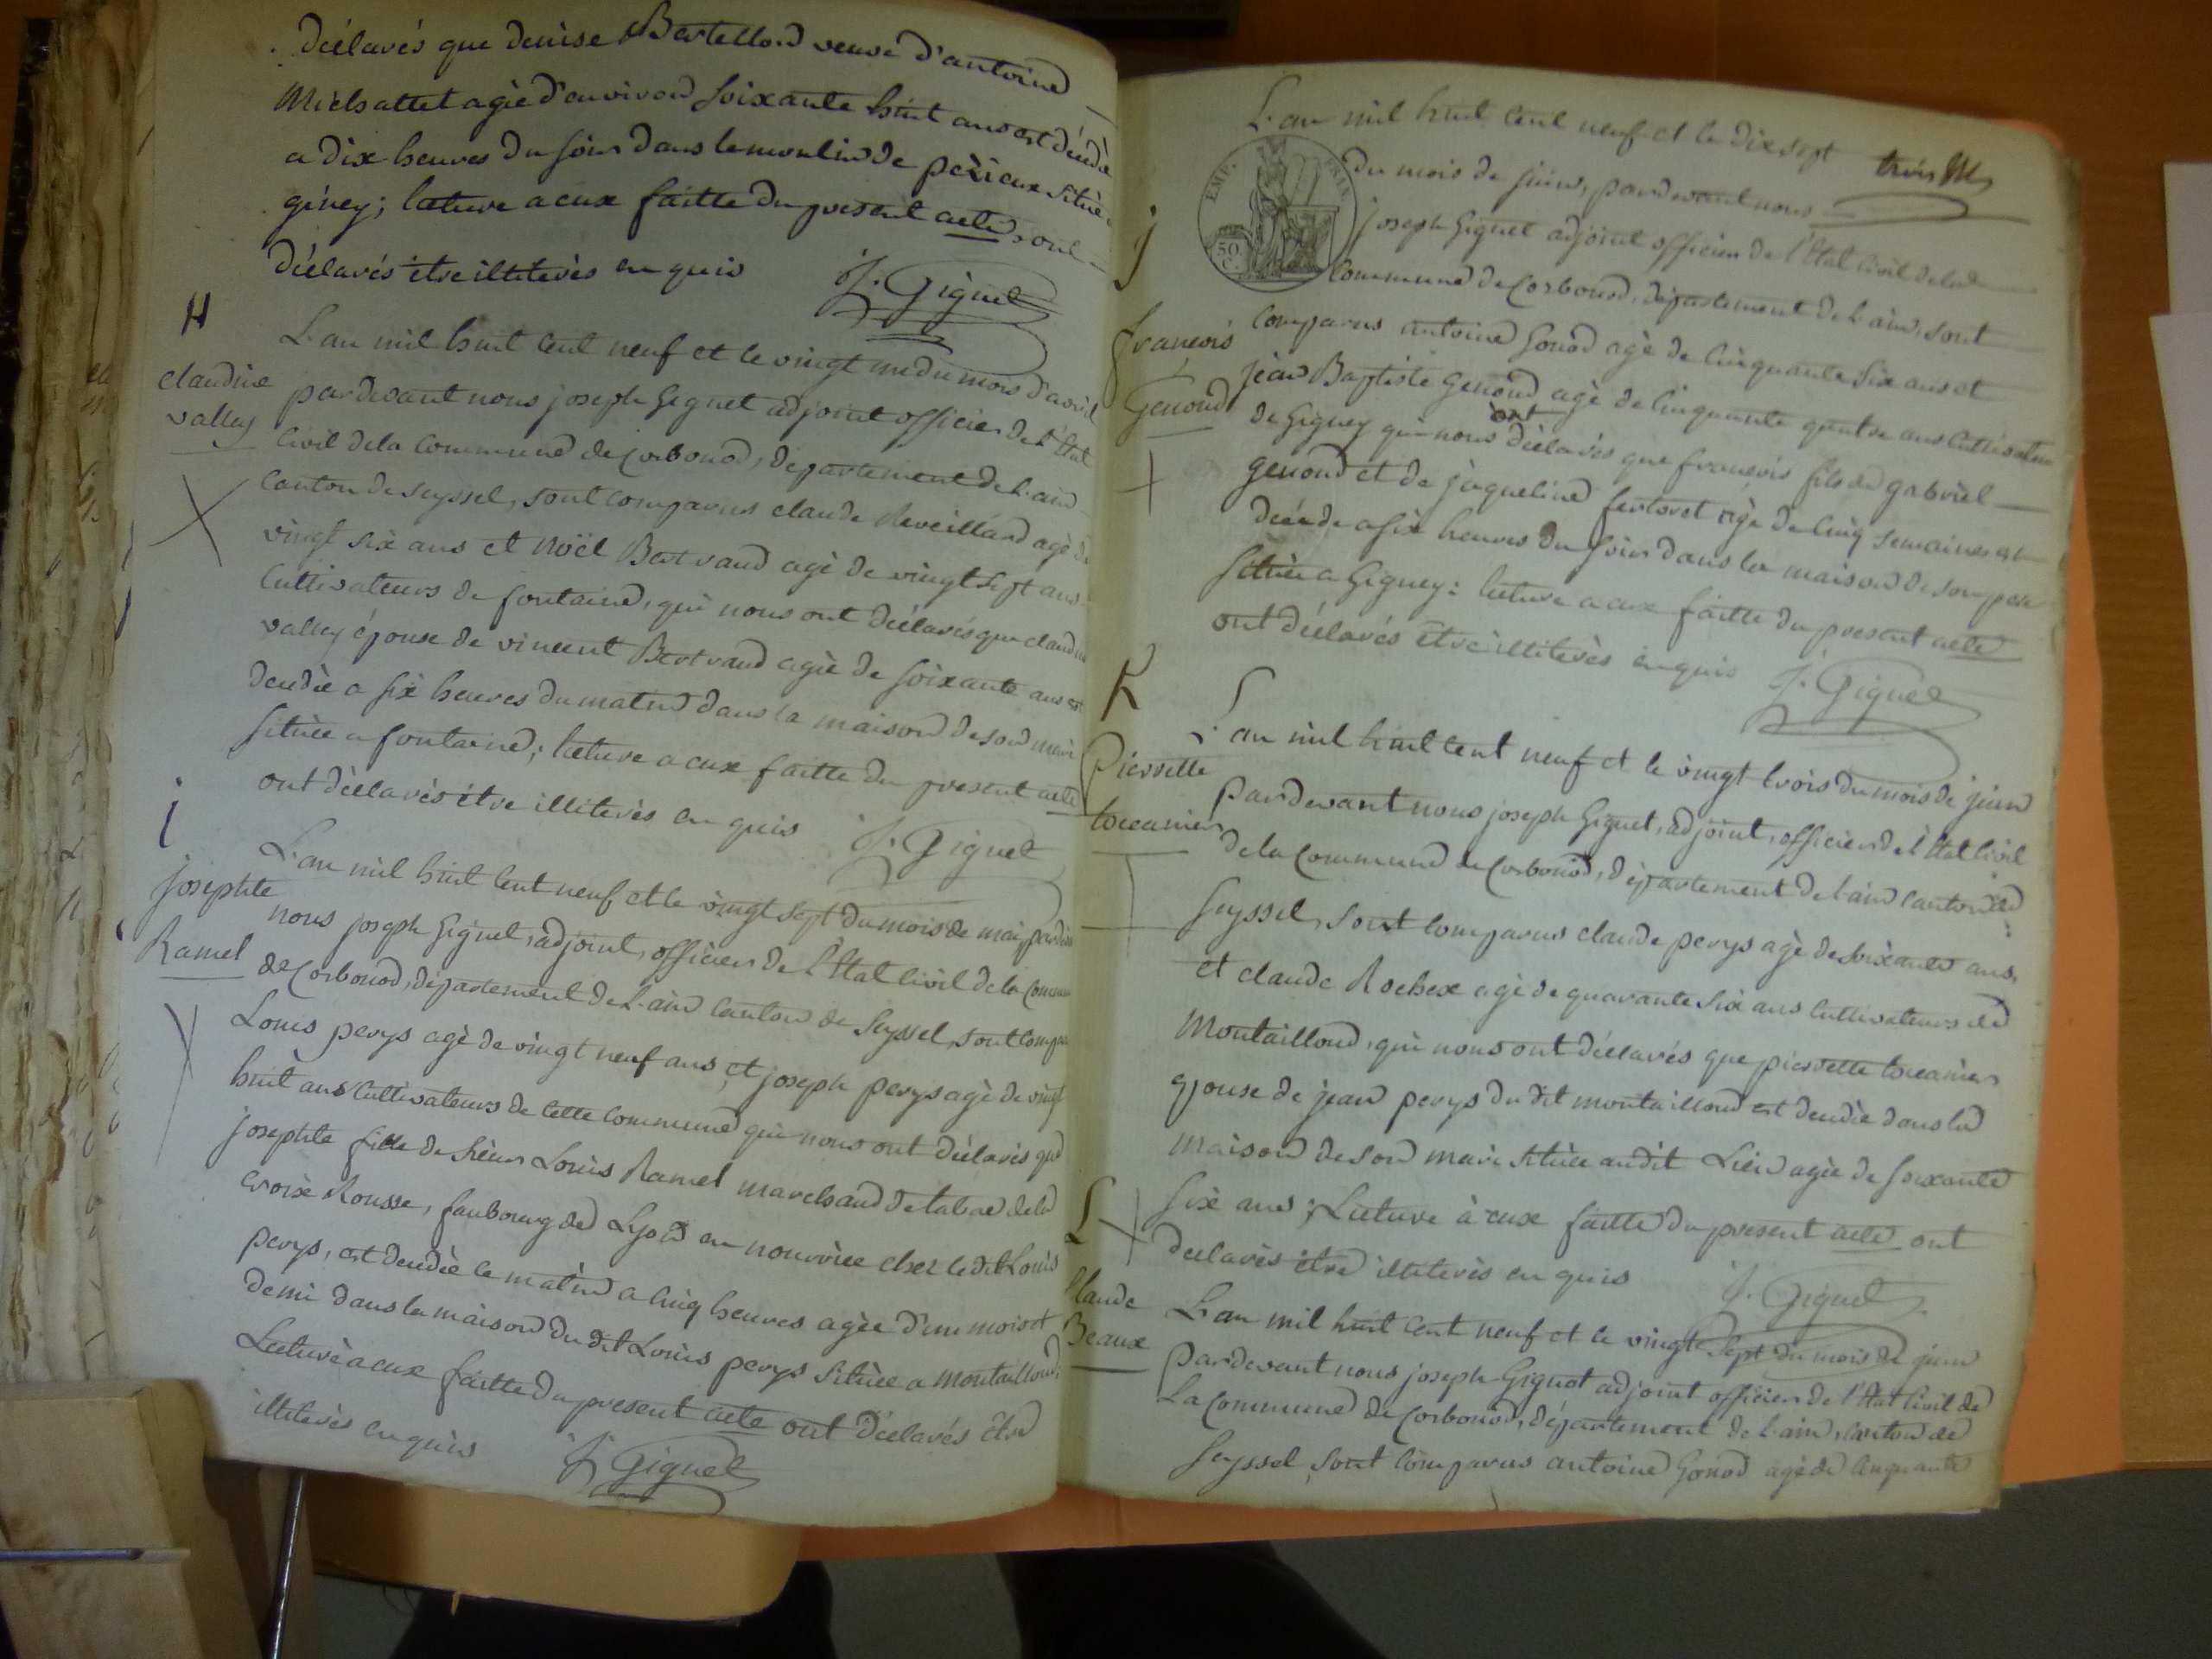 déclarés que denise Bertellod veuve d'antoine
Michallet agée d'environ soixante huit ans est décédée
a dix heures du soir dans le moulin de périeux située
giney; lecture a eux faitte du present acte, ont
déclarés être illiterés enquis J. Giguet
H
claudine
vallej
L'an mil huit cent neuf et le vingt un du mois d'avril
pardevant nous joseph Giguet adjoint officier de l'état
civil de la commune de corbonod, département de l'ain
canton de seyssel, sont comparus claude Reveillard agé de
vingt six ans et Noël Bertrand agé de vingt sept ans
cultivateurs de fontaine, qui nous ont déclarés que claudine
valley épouse de vincent Bertrand agée de soixante ans est
décédée a six heures du matin dans la maison de son mari
située a fontaine; lecture a eux faitte du present acte
ont déclarés être illiterés enquis J. Giguet
i
josephte
Ramel
L'an mil huit cent neuf et le vingt sept du mois de mai pardev
nous joseph Giguet, adjoint, officier de l'état civil de la commun
de corbonod, département de l'ain canton de seyssel, sont compar
Louis perys agé de vingt neuf ans, et joseph perys agé de vingt
huit ans cultivateurs de cette commune qui nous ont déclarés que
josephte fille de sieur Louis Ramel marchand de tabac de la
croix Rousse, faubourg de Lyon en nourrice chez le dit Louis
perys, est décédée le matin a cinq heures agée d'un mois et
demi dans la maison du dit Louis perys située a montaillond;
Lecture a eux faitte du present acte ont déclarés être
illiterés enquis J. Giguet
trois M
EMP. FRIA.
50. C.
j
françois
Genond
L'an mil huit cent neuf et le dix sept
du mois de juin, pardevant nous
joseph Giguet adjoint officier de l'état civil de la
commune de corbonod, département de l'ain, sont
comparus antoine Gonod agé de cinquante six ans et
jean Baptiste Genond agé de cinquante quatre ans cultivateur
de Gigney qui nous ont déclarés que françois fils de gabriel
genond et de jaqueline fertoret agé de cinq semaines est
décédé a six heures du soir dans la maison de son pere
située a Gigney: lecture a eux faitte du present acte
ont déclarés être illiterés enquis J. Giguet
K
Pierrette
toccanier
L'an mil huit cent neuf et le vingt trois du mois de juin
pardevant nous joseph Giguet, adjoint, officier de l'état civil
de la commune de corbonod, département de l'ain canton de
seyssel, sont comparus claude perys agé de soixante ans,
et claude Rochex agé de quarante six ans cultivateurs de
Montaillond, qui nous ont déclarés que pierrette tocanier
epouse de jean perys du dit montaillond est décédée dans la
maison de son mari située audit Lieu agée de soixante
six ans; Lecture à eux faitte du present acte ont
declarés être illiterés enquis J. Giguet
L
Claude
Beaux
L'an mil huit cent neuf et le vingt sept du mois de juin
pardevant nous joseph Giguet adjoint officier de l'état civil de
La commune de corbonod, département de l'ain, canton de
seyssel, sont comparus antoine Gonod agé de cinquante